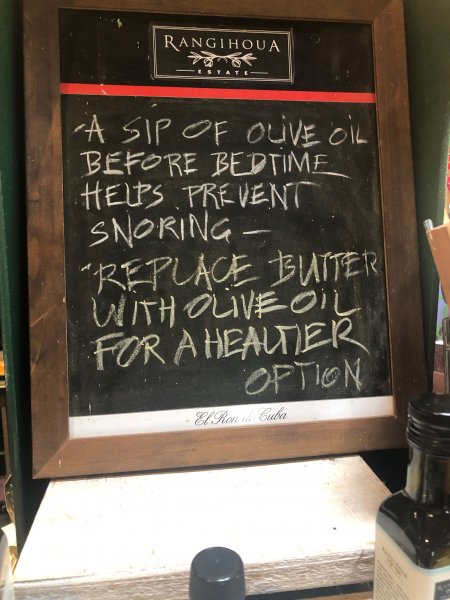 RANGIHOUA
ESTATE
-A SIP OF OLIVE OIL
BEFORE BEDTIME
HELPS PREVENT
SNORING -
-REPLACE BUTTER
WITH OLIVE OIL
FOR A HEALTIER
OPTION
El Ron de Cuba